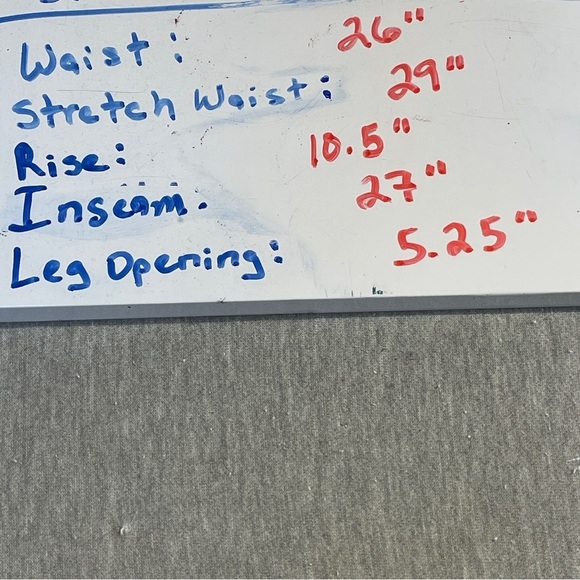 Waist: 26"
Stretch Waist: 29"
Rise: 10.5"
Inseam. 27"
Leg Opening: 5.25"